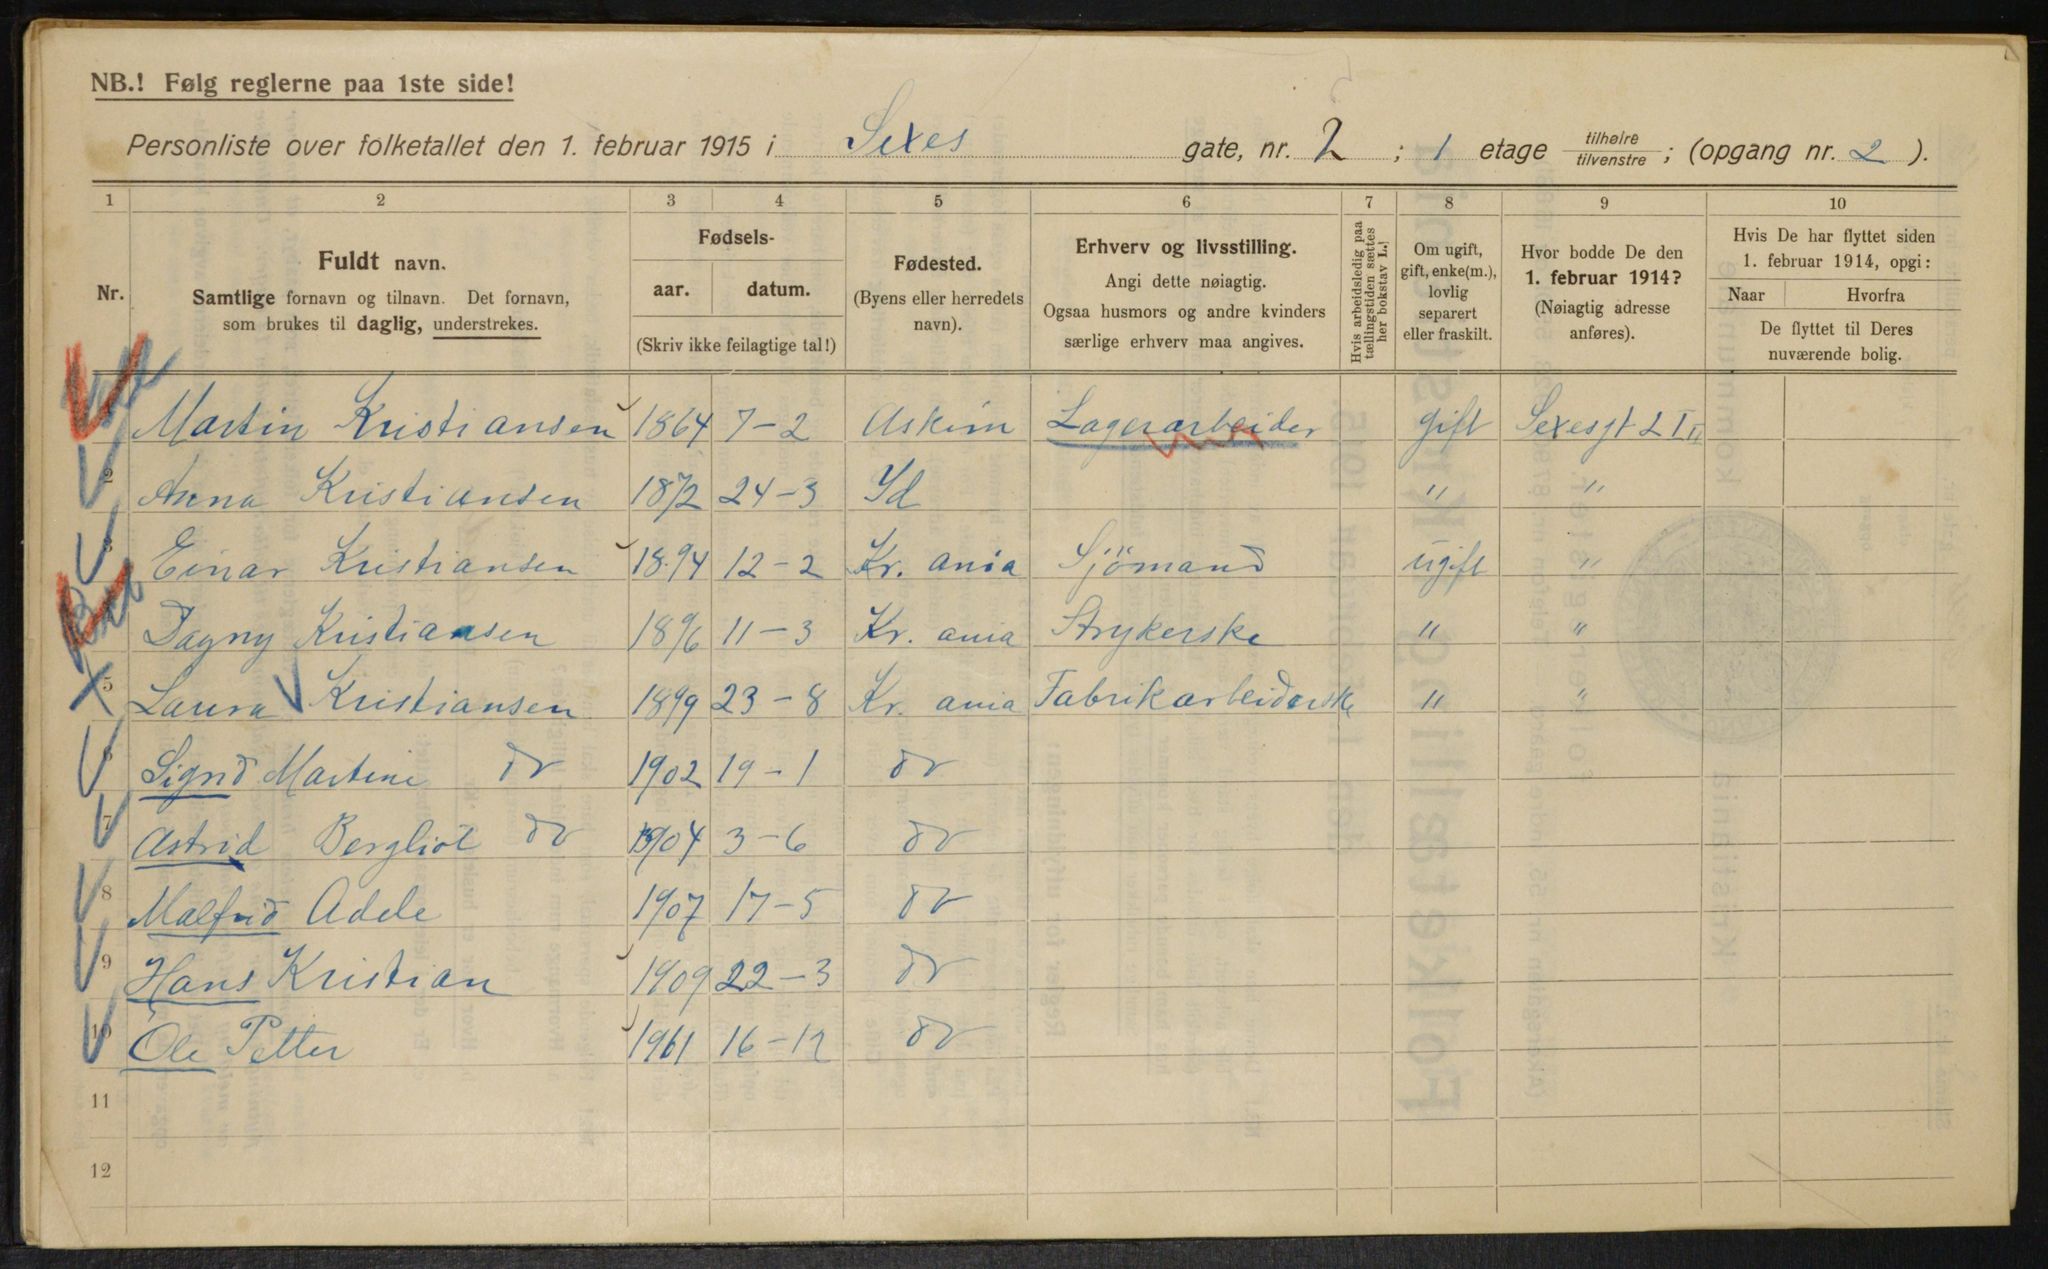 NB.! Følg reglerne paa 1ste side!
Personliste over folketallet den 1. februar 1915 i Sexes gate, nr. 2 ; 1 etage tilhøire/tilvenstre ; (opgang nr. 2 ).
1 2 3 4 5 6 7 8 9 10
Nr.
Fuldt navn.
Samtlige fornavn og tilnavn. Det fornavn,
som brukes til daglig, understrekes.
Fødsels-
aar. datum.
(Skriv ikke feilagtige tal!)
Fødested.
(Byens eller herredets
navn).
Erhverv og livsstilling.
Angi dette nøiagtig.
Ogsaa husmors og andre kvinders
særlige erhverv maa angives.
Hvis arbeidsledig paa
tællingstiden sættes
her bokstav L.!
Om ugift,
gift, enke(m.),
lovlig
separert
eller fraskilt.
Hvor bodde De den
1. februar 1914?
(Nøiagtig adresse
anføres).
Hvis De har flyttet siden
1. februar 1914, opgi:
Naar Hvorfra
De flyttet til Deres
nuværende bolig.
Martin Kristiansen 1864 7-2 Askim Lagerarbeider gift Sexesgt 2 I
2 Anna Kristiansen 1872 24-3 Id " "
3 Einar Kristiansen 1894 12-2 Kr. ania Sjömand ugift "
Dagny Kristiansen 1896 11-3 Kr. ania Strykerske " "
5 Laura Kristiansen 1899 23-8 Kr. ania Fabrikarbeiderske " "
6 Sigrid Martine do 1902 19-1 do
7 Astrid Bergliot do 1904 3-6 do
8 Malfrid Adele 1907 17-5 do
9 Hans Kristian 1909 22-3 do
10 Ole Petter 1961 16-12 do
11
12